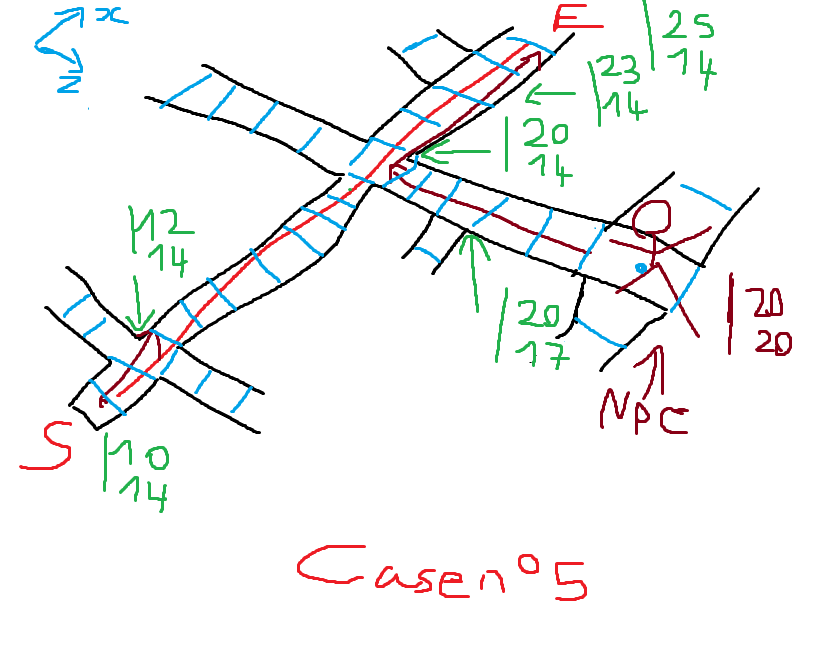 x
z
E
25
14
23
14
20
14
12
14
20
17
20
20
NPC
S
10
14
Case n°5